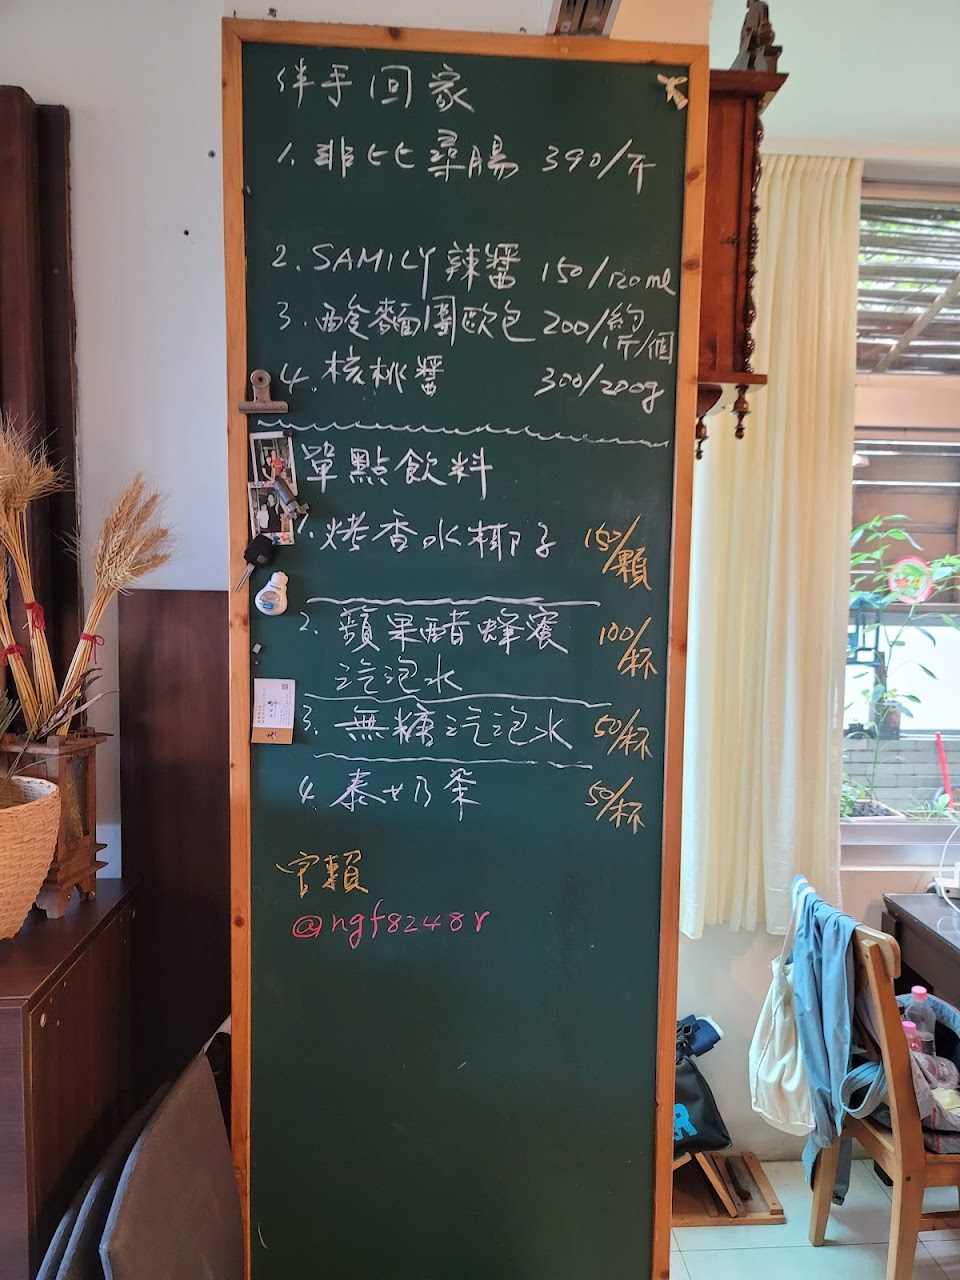 伴手回家
1. 非比尋腸 390/斤
2. SAMILY辣醬 150/120ml
3. 酸麵團歐包 200/約1斤/個
4. 核桃醬 300/200g
單點飲料
1. 烤香水椰子 150/顆
2. 蘋果醋蜂蜜 100/杯
汽泡水
3. 無糖汽泡水 50/杯
4. 泰奶茶 50/杯
官賴
@ngf8248r